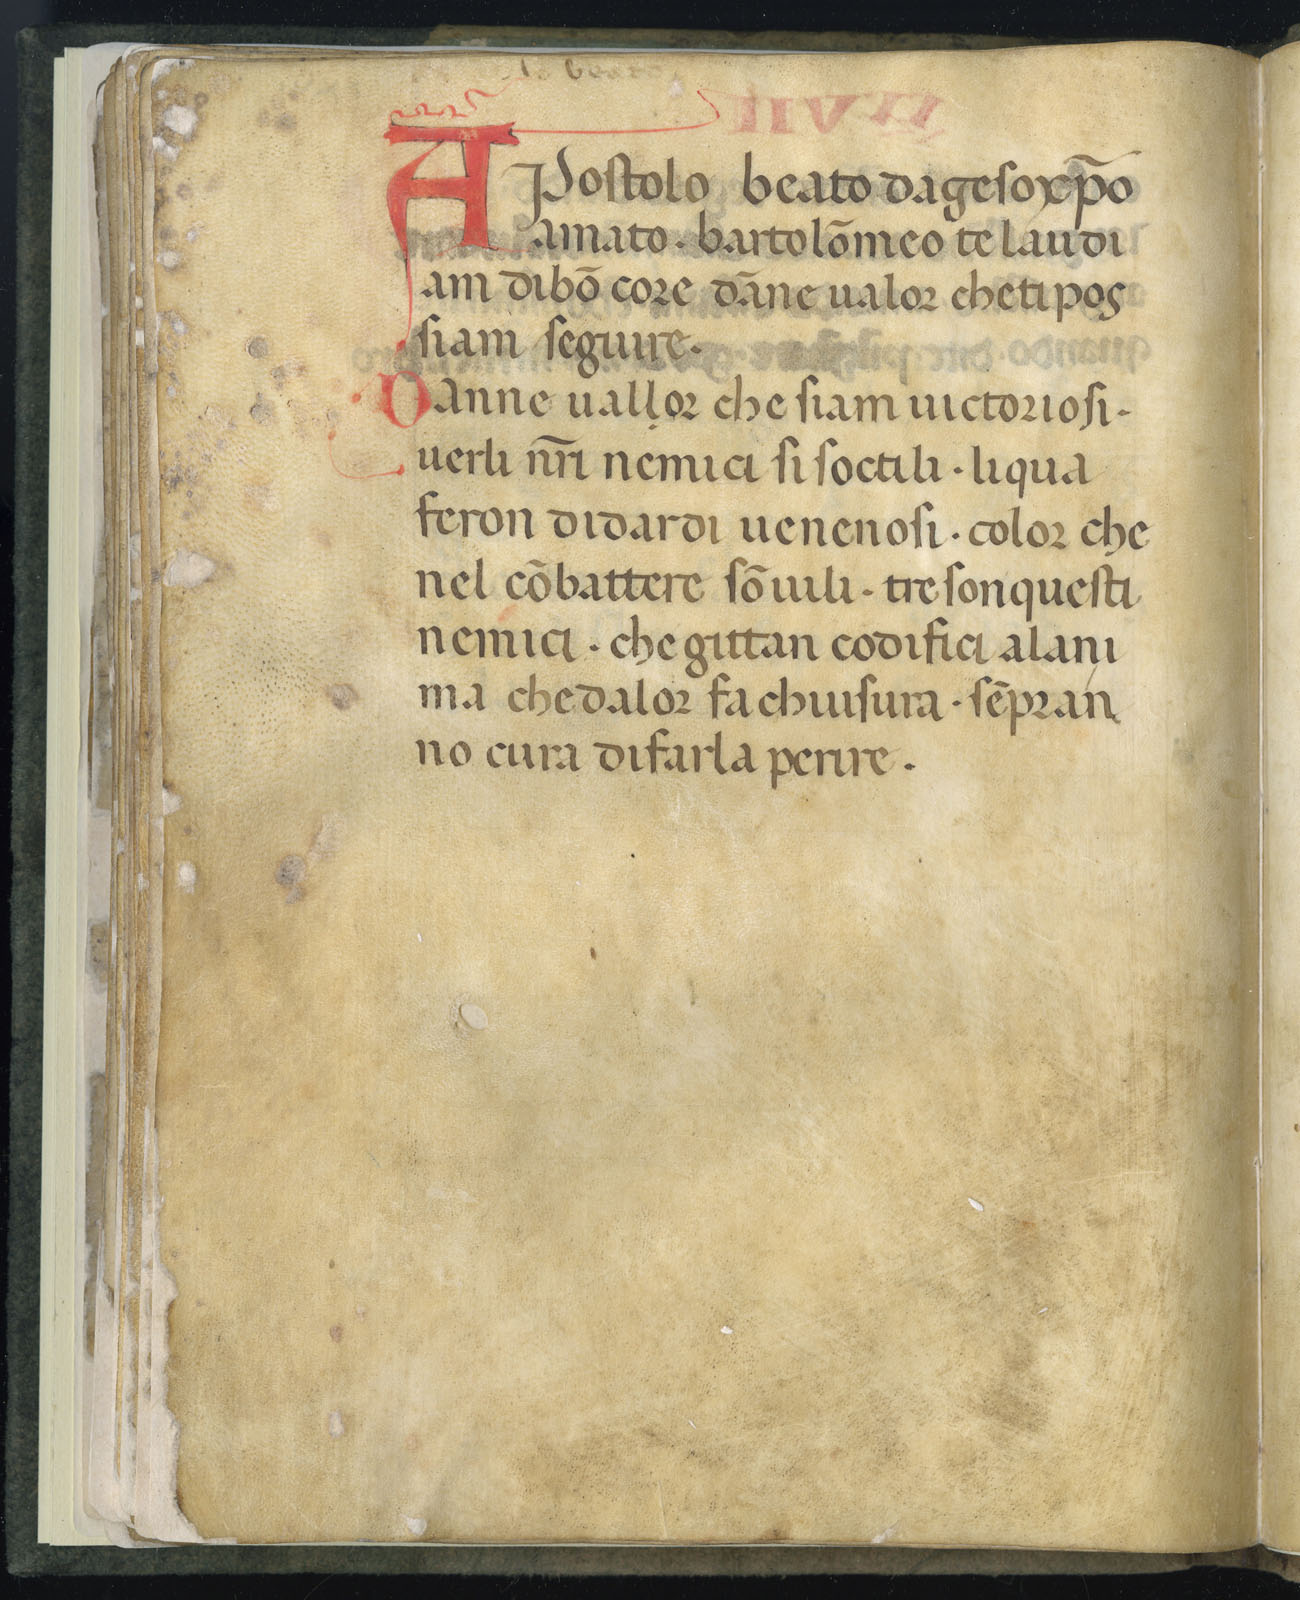 APostolo beato dagesoxp̄o
amato · bartolōmeo te laudi
am dibō core dāne ualor cheti pos
siam seguire ·
Danne uallor che siam uictoriosi ·
uerli nr̄i nemici si soctili · li qua
feron didardi uenenosi · color che
nel cōbattere sō uili · tre son questi
nemici · che gittan codifici alani
ma chedalor fa chiuisura · sēpran
no cura di farla perire ·